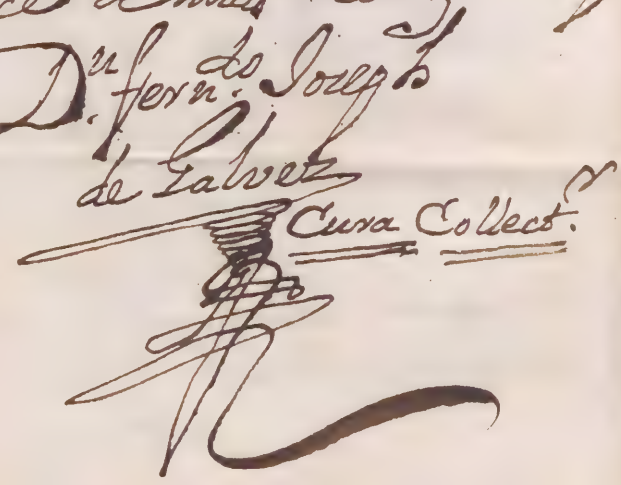 Dn. fern.do Joseph
de Galvez
Cura Collect.r